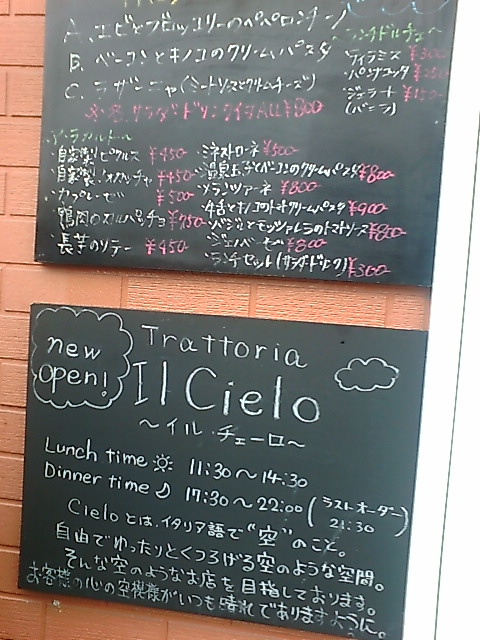 A. エビとブロッコリーのペペロンチーノ
B. ベーコンとキノコのクリームパスタ
C. ラザーニャ(ミートソースとクリームチーズ)
※各サラダ・ドリンク ALL ¥800
ランチドルチェ
・ティラミス ¥300
・パンナコッタ
・ジェラート ¥150
(バニラ)
ア・ラ・カルト
・自家製ピクルス ¥450
・自家製フォカッチャ ¥450
・カプレーゼ ¥500
・鴨肉のカルパッチョ ¥750
・長芋のソテー ¥450
・ミネストローネ ¥500
・温泉玉子とベーコンのクリームパスタ ¥800
・メランツァーネ ¥800
・牛舌とキノコのトマトクリームパスタ ¥900
・バジルとモッツァレラのトマトソース ¥800
・ジェノベーゼ ¥800
・ランチセット(サラダ・ドリンク) ¥300
new open!
Trattoria
Il Cielo
～イル・チェーロ～
Lunch time 11:30～14:30
Dinner time 17:30～22:00(ラストオーダー 21:30)
Cieloとは、イタリア語で“空”のこと。
自由でゆったりとくつろげる空のような空間。
そんな空のようなお店を目指しております。
お客様の心の空模様がいつも晴れでありますように。